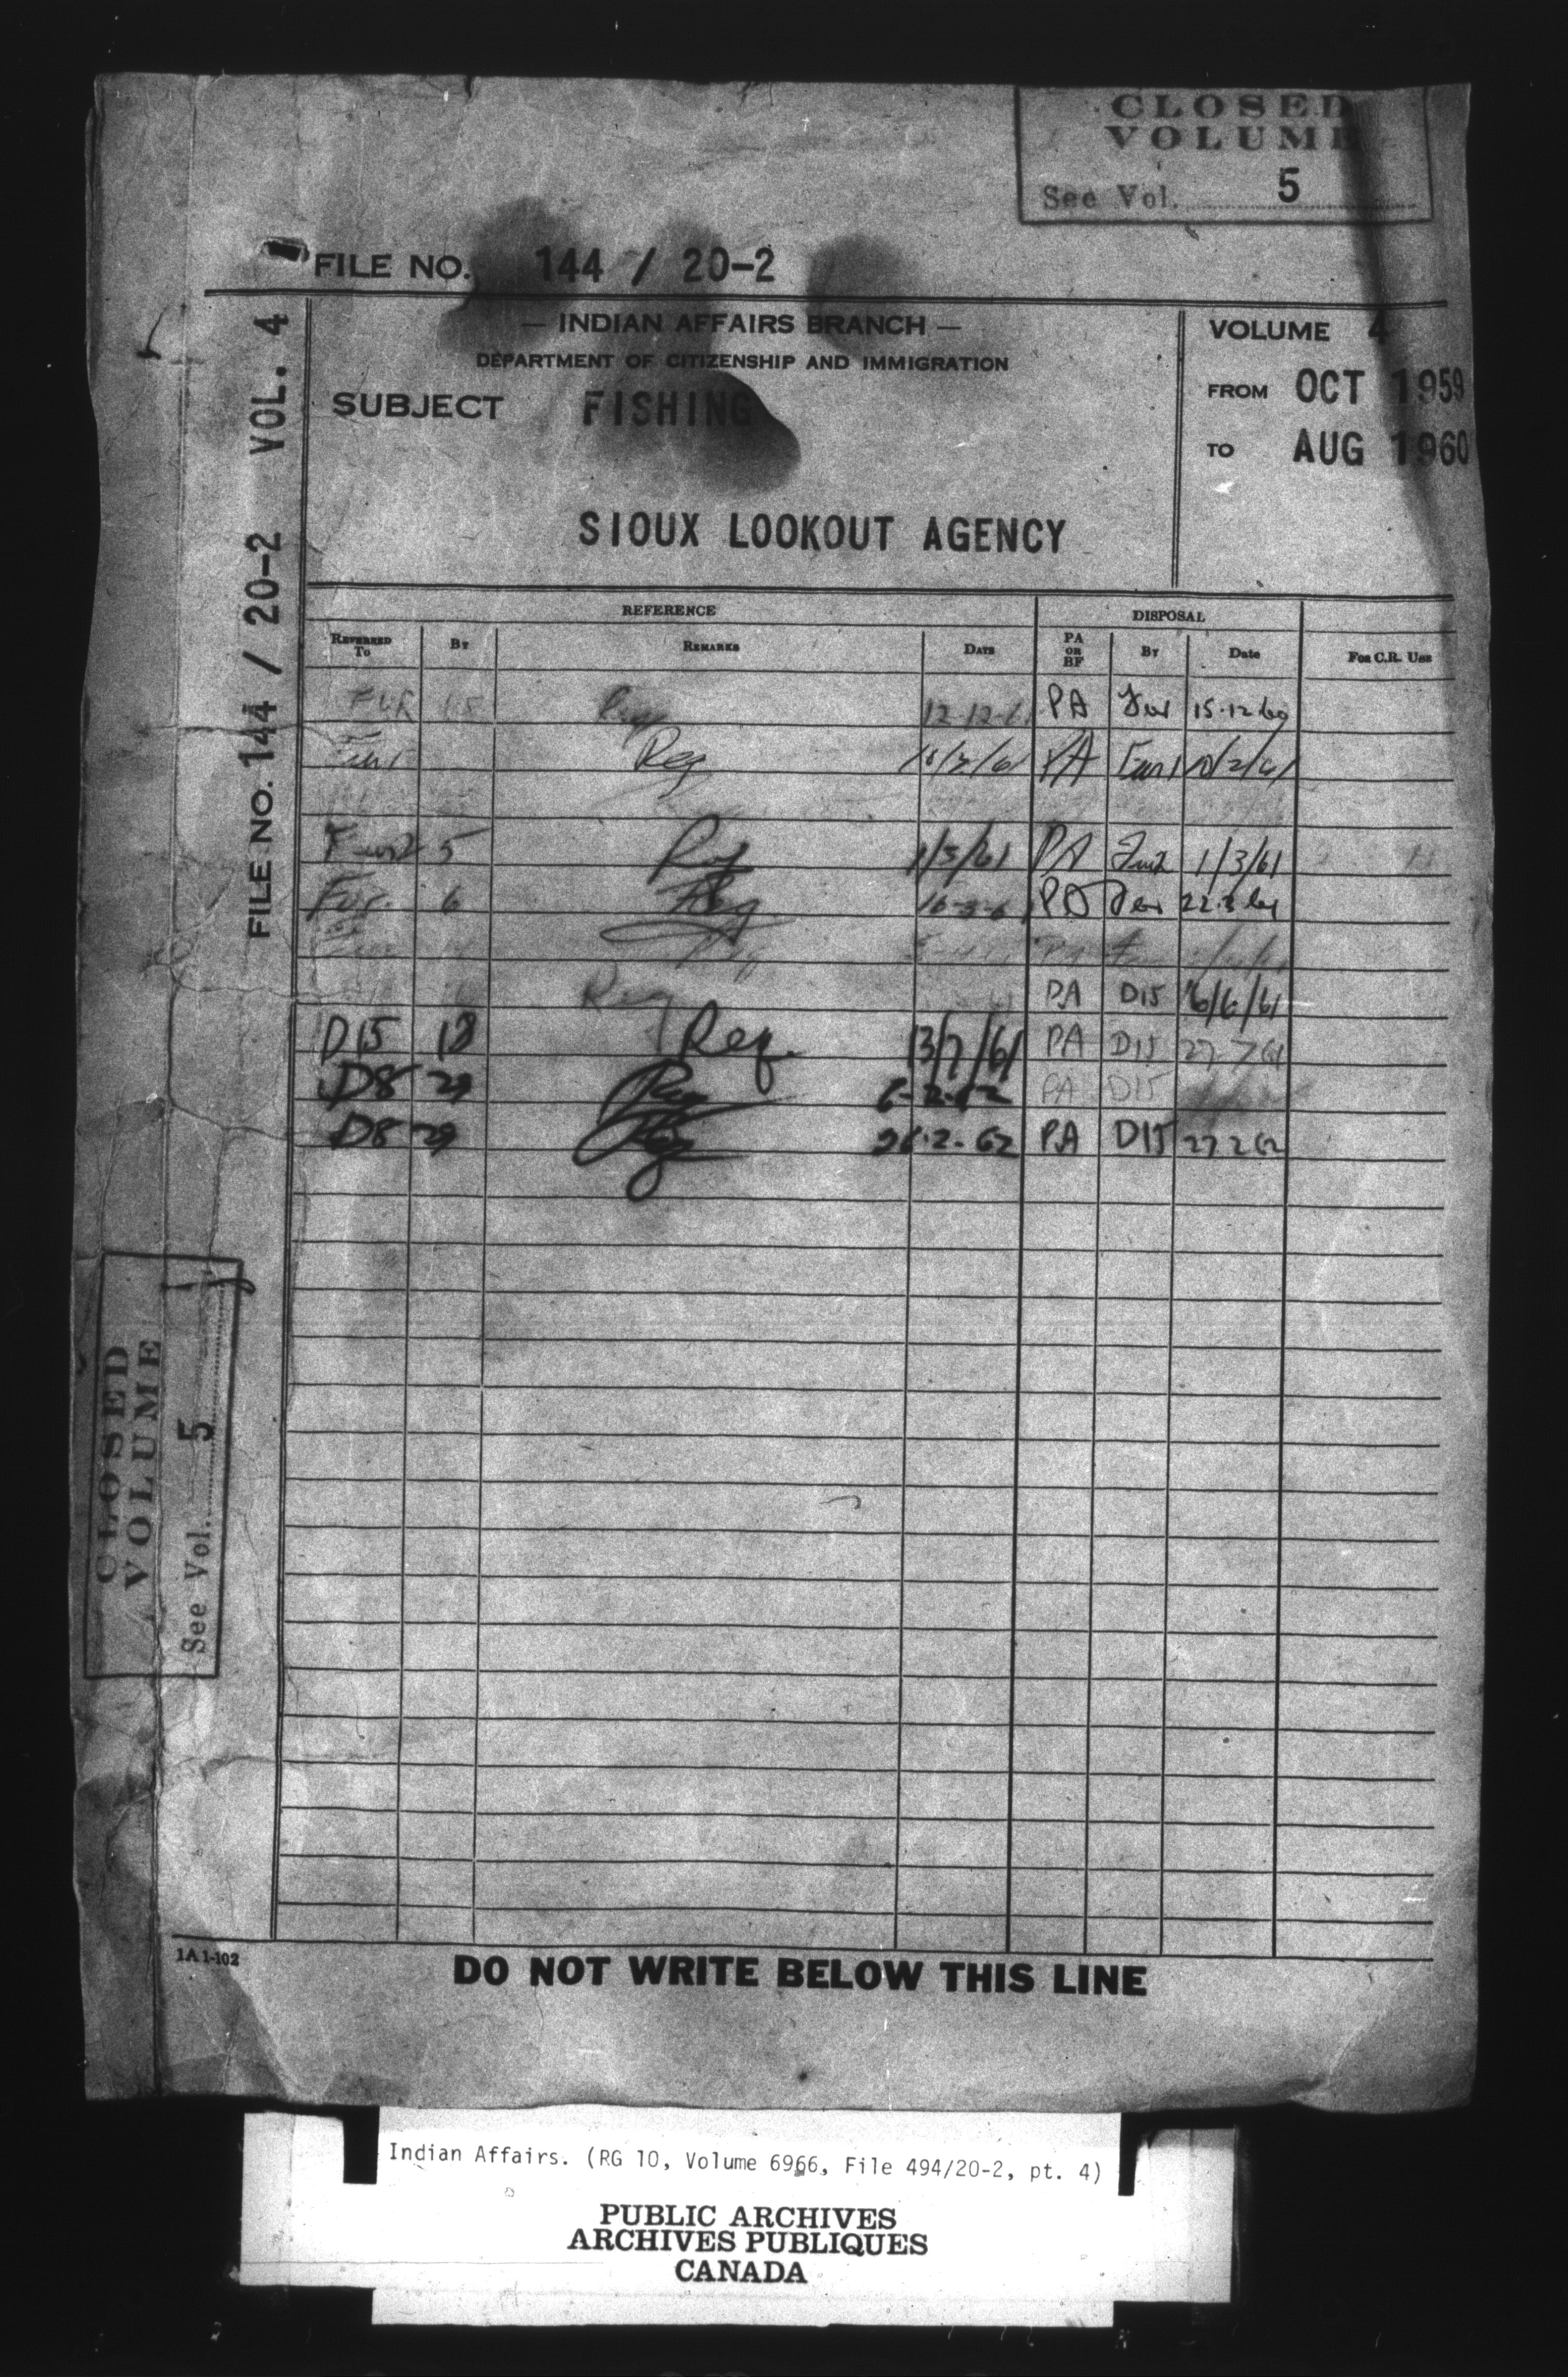 CLOSED
VOLUME
See Vol. 5
FILE NO. 144 / 20-2
— INDIAN AFFAIRS BRANCH —
DEPARTMENT OF CITIZENSHIP AND IMMIGRATION
SUBJECT FISHING
SIOUX LOOKOUT AGENCY
VOLUME 4
FROM OCT 1959
TO AUG 1960
FILE NO. 144 / 20-2 VOL. 4
REFERENCE DISPOSAL
REFERRED TO BY REMARKS DATE PA OR BF BY Date FOR C.R. USE
FUR PA Fur
Reg PA
Fur2 5 1/3/61 PA Fur2 1/3/61
Fur. 6 Reg PA
Reg PA D15 6/6/61
D15 18 Req. 13/7/61 PA D15 27.7.61
D8 29 PA D15
D8 29 26.2.62 PA D15 27.2.62
CLOSED
VOLUME
See Vol. 5
1A1-102
DO NOT WRITE BELOW THIS LINE
Indian Affairs. (RG 10, Volume 6966, File 494/20-2, pt. 4)
PUBLIC ARCHIVES
ARCHIVES PUBLIQUES
CANADA